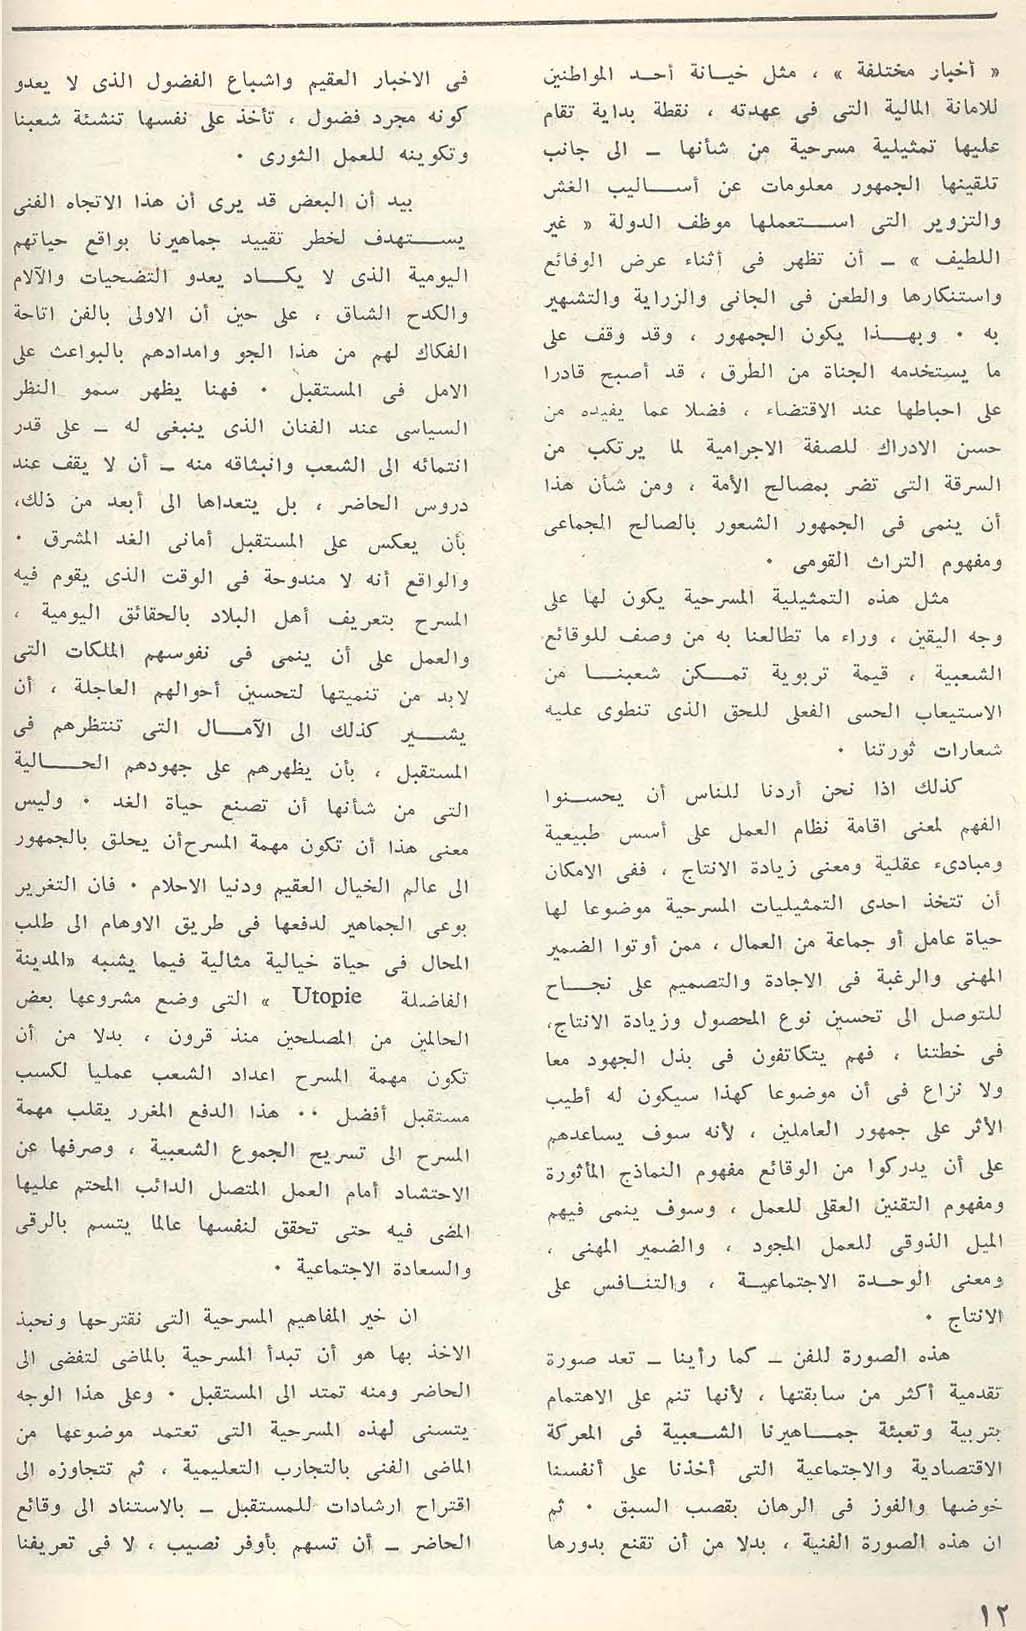 « أخبار مختلفة » ، مثل خيـانة أحـد المواطنين
للامانة المالية التى في عهدته ، نقطة بداية تقام
عليها تمثيلية مسرحية من شأنها ــ الى جانب
تلقينها الجمهور معلومات عن أســاليب الغش
والتزوير التى اســتعملها موظف الدولة « غير
اللطيف » ــ أن تظهر فى أثناء عرض الوقائع
واستنكارها والطعن فى الجانى والزراية والتشهير
به ٠ وبهــذا يكون الجمهور ، وقد وقف على
ما يستخدمه الجناة من الطرق ، قد أصبح قادرا
على احباطها عند الاقتضاء ، فضلا عما يفيده من
حسن الادراك للصفة الاجرامية لما يرتكب من
السرقة التى تضر بمصالح الأمة ، ومن شأن هذا
أن ينمى فى الجمهور الشعور بالصالح الجماعى
ومفهوم التراث القومى ٠
مثل هذه التمثيلية المسرحية يكون لها على
وجه اليقين ، وراء ما تطالعنا به من وصف للوقائع
الشعبية ، قيمة تربوية تمــكن شعبنــا من
الاستيعاب الحسى الفعلى للحق الذى تنطوى عليه
شعارات ثورتنا ٠
كذلك اذا نحن أردنا للناس أن يحســنوا
الفهم لمعنى اقامة نظام العمل على أسس طبيعية
ومبادىء عقلية ومعنى زيادة الانتاج ، ففى الامكان
أن تتخذ احدى التمثيليات المسرحية موضوعا لها
حياة عامل أو جماعة من العمال ، ممن أوتوا الضمير
المهنى والرغبة فى الاجادة والتصميم على نجــاح
للتوصل الى تحسين نوع المحصول وزيادة الانتاج،
فى خطتنا ، فهم يتكاتفون فى بذل الجهود معا
ولا نزاع فى أن موضوعا كهذا سيكون له أطيب
الأثر على جمهور العاملين ، لأنه سوف يساعدهم
على أن يدركوا من الوقائع مفهوم النماذج المأثورة
ومفهوم التقنين العقلى للعمل ، وسوف ينمى فيهم
الميل الذوقى للعمل المجود ، والضمير المهنى ،
ومعنى الوحـدة الاجتماعيـة ، والتنـافس على
الانتاج ٠
هذه الصورة للفن ــ كما رأينا ــ تعد صورة
تقدمية أكثر من سابقتها ، لأنها تنم على الاهتمام
بتربية وتعبئة جمــاهيرنا الشـعبية فى المعركة
الاقتصادية والاجتماعية التى أخذنا على أنفسنا
خوضها والفوز فى الرهان بقصب السبق ٠ ثم
ان هذه الصورة الفنية ، بدلا من أن تقنع بدورها
فى الاخبار العقيم واشباع الفضول الذى لا يعدو
كونه مجرد فضول ، تأخذ على نفسها تنشئة شعبنا
وتكوينه للعمل الثورى ٠
بيد أن البعض قد يرى أن هذا الاتجاه الفنى
يســتهدف لخطر تقييد جماهيرنا بواقع حياتهم
اليومية الذى لا يكــاد يعدو التضحيات والآلام
والكدح الشاق ، على حين أن الاولى بالفن اتاحة
الفكاك لهم من هذا الجو وامدادهم بالبواعث على
الامل فى المستقبل ٠ فهنا يظهر سمو النظر
السياسى عند الفنان الذى ينبغى له ــ على قدر
انتمائه الى الشعب وانبثاقه منه ــ أن لا يقف عند
دروس الحاضر ، بل يتعداها الى أبعد من ذلك،
بأن يعكس على المستقبل أمانى الغد المشرق ٠
والواقع أنه لا مندوحة فى الوقت الذى يقوم فيه
المسرح بتعريف أهل البلاد بالحقائق اليومية ،
والعمل على أن ينمى فى نفوسهم الملكات التى
لابد من تنميتها لتحسين أحوالهم العاجلة ، أن
يشــير كذلك الى الآمــال التى تنتظرهم فى
المستقبل ، بأن يظهرهم على جهودهم الحــالية
التى من شأنها أن تصنع حياة الغد ٠ وليس
معنى هذا أن تكون مهمة المسرح أن يحلق بالجمهور
الى عالم الخيال العقيم ودنيا الاحلام ٠ فان التغرير
بوعى الجماهير لدفعها فى طريق الاوهام الى طلب
المحال فى حياة خيالية مثالية فيما يشبه «المدينة
الفاضلة Utopie » التى وضع مشروعها بعض
الحالمين من المصلحين منذ قرون ، بدلا من أن
تكون مهمة المسرح اعداد الشعب عمليا لكسب
مستقبل أفضل ٠٠ هذا الدفع المغرر يقلب مهمة
المسرح الى تسريح الجموع الشعبية ، وصرفها عن
الاحتشاد أمام العمل المتصل الدائب المحتم عليها
المضى فيه حتى تحقق لنفسها عالما يتسم بالرقى
والسعادة الاجتماعية ٠
ان خير المفاهيم المسرحية التى نقترحها ونحبذ
الاخذ بها هو أن تبدأ المسرحية بالماضى لتفضى الى
الحاضر ومنه تمتد الى المستقبل ٠ وعلى هذا الوجه
يتسنى لهذه المسرحية التى تعتمد موضوعها من
الماضى الفنى بالتجارب التعليمية ، ثم تتجاوزه الى
اقتراح ارشادات للمستقبل ــ بالاستناد الى وقائع
الحاضر ــ أن تسهم بأوفر نصيب ، لا فى تعريفنا
١٢